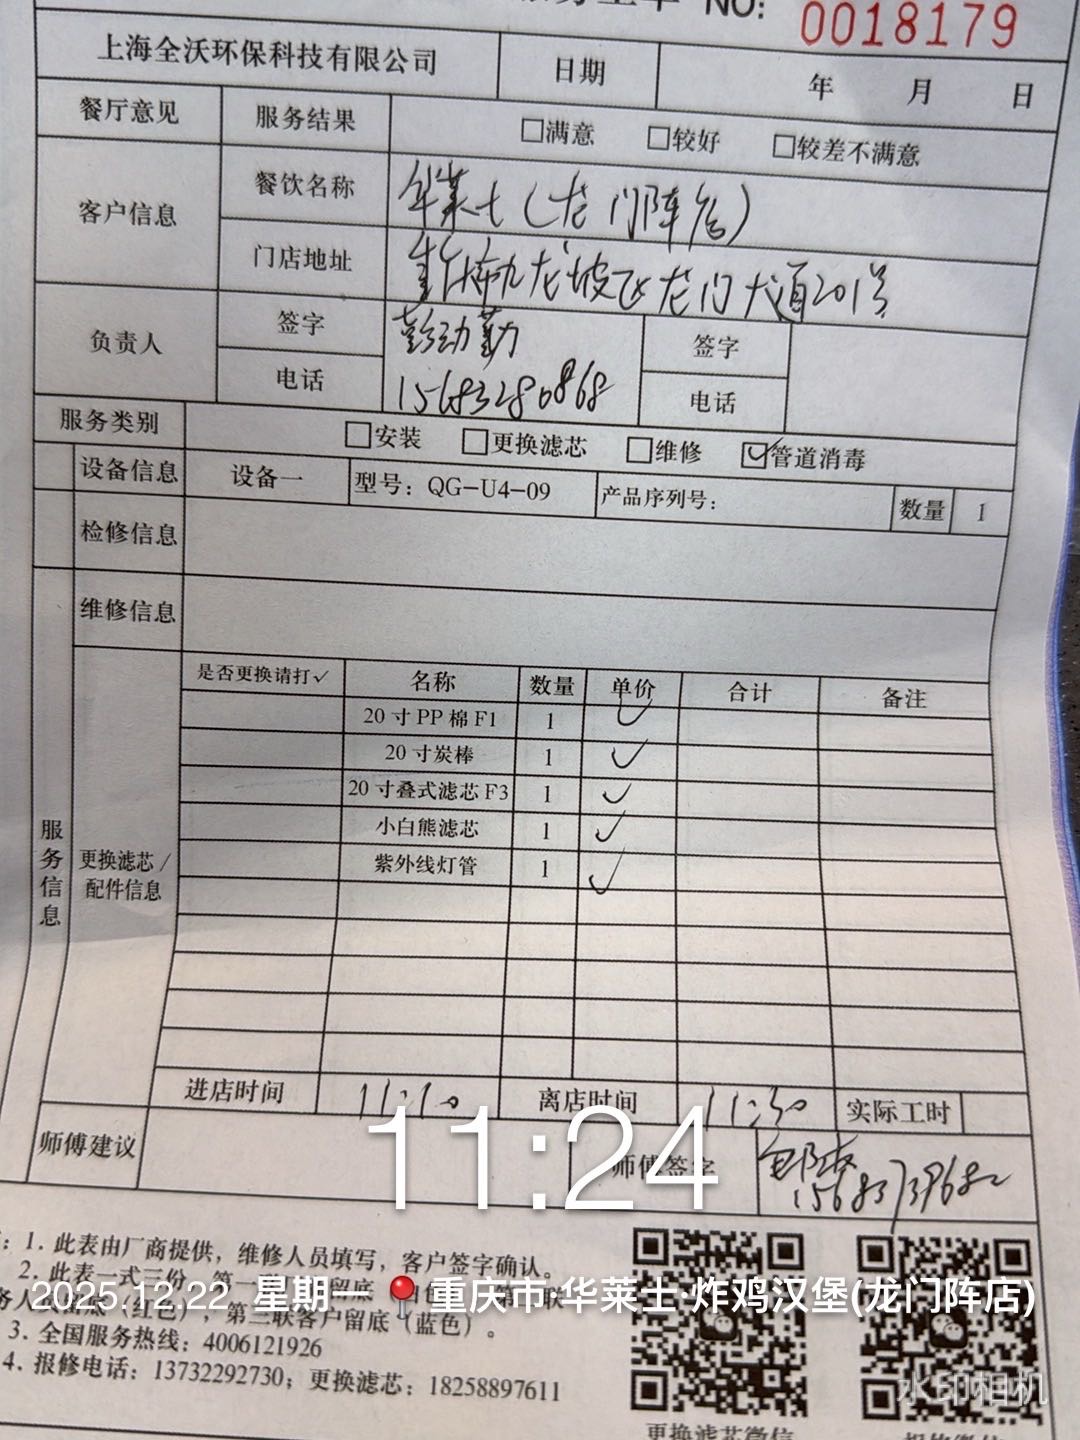 NO: 0018179
上海全沃环保科技有限公司 日期 年 月 日
餐厅意见 服务结果 □满意 □较好 □较差不满意
客户信息 餐饮名称 华莱士(龙门阵店)
门店地址 重庆市九龙坡区龙门大道201号
负责人 签字 彭劲勤 签字
电话 15683280868 电话
服务类别 □安装 □更换滤芯 □维修 ☑管道消毒
设备信息 设备一 型号：QG-U4-09 产品序列号： 数量 1
检修信息
维修信息
是否更换请打✓ 名称 数量 单价 合计 备注
20寸PP棉F1 1 ✓
20寸炭棒 1 ✓
20寸叠式滤芯F3 1 ✓
小白熊滤芯 1 ✓
紫外线灯管 1 ✓
服务信息
更换滤芯/配件信息
进店时间 11:10 离店时间 11:30 实际工时
11:24
师傅建议 师傅签字
：1. 此表由厂商提供，维修人员填写，客户签字确认。
2. 此表一式三份，第一 留底
2025.12.22 星期一 重庆市·华莱士·炸鸡汉堡(龙门阵店)
(红色)，第三联客户留底（蓝色）。
3. 全国服务热线：4006121926
4. 报修电话：13732292730；更换滤芯：18258897611
水印相机
更换滤芯微信